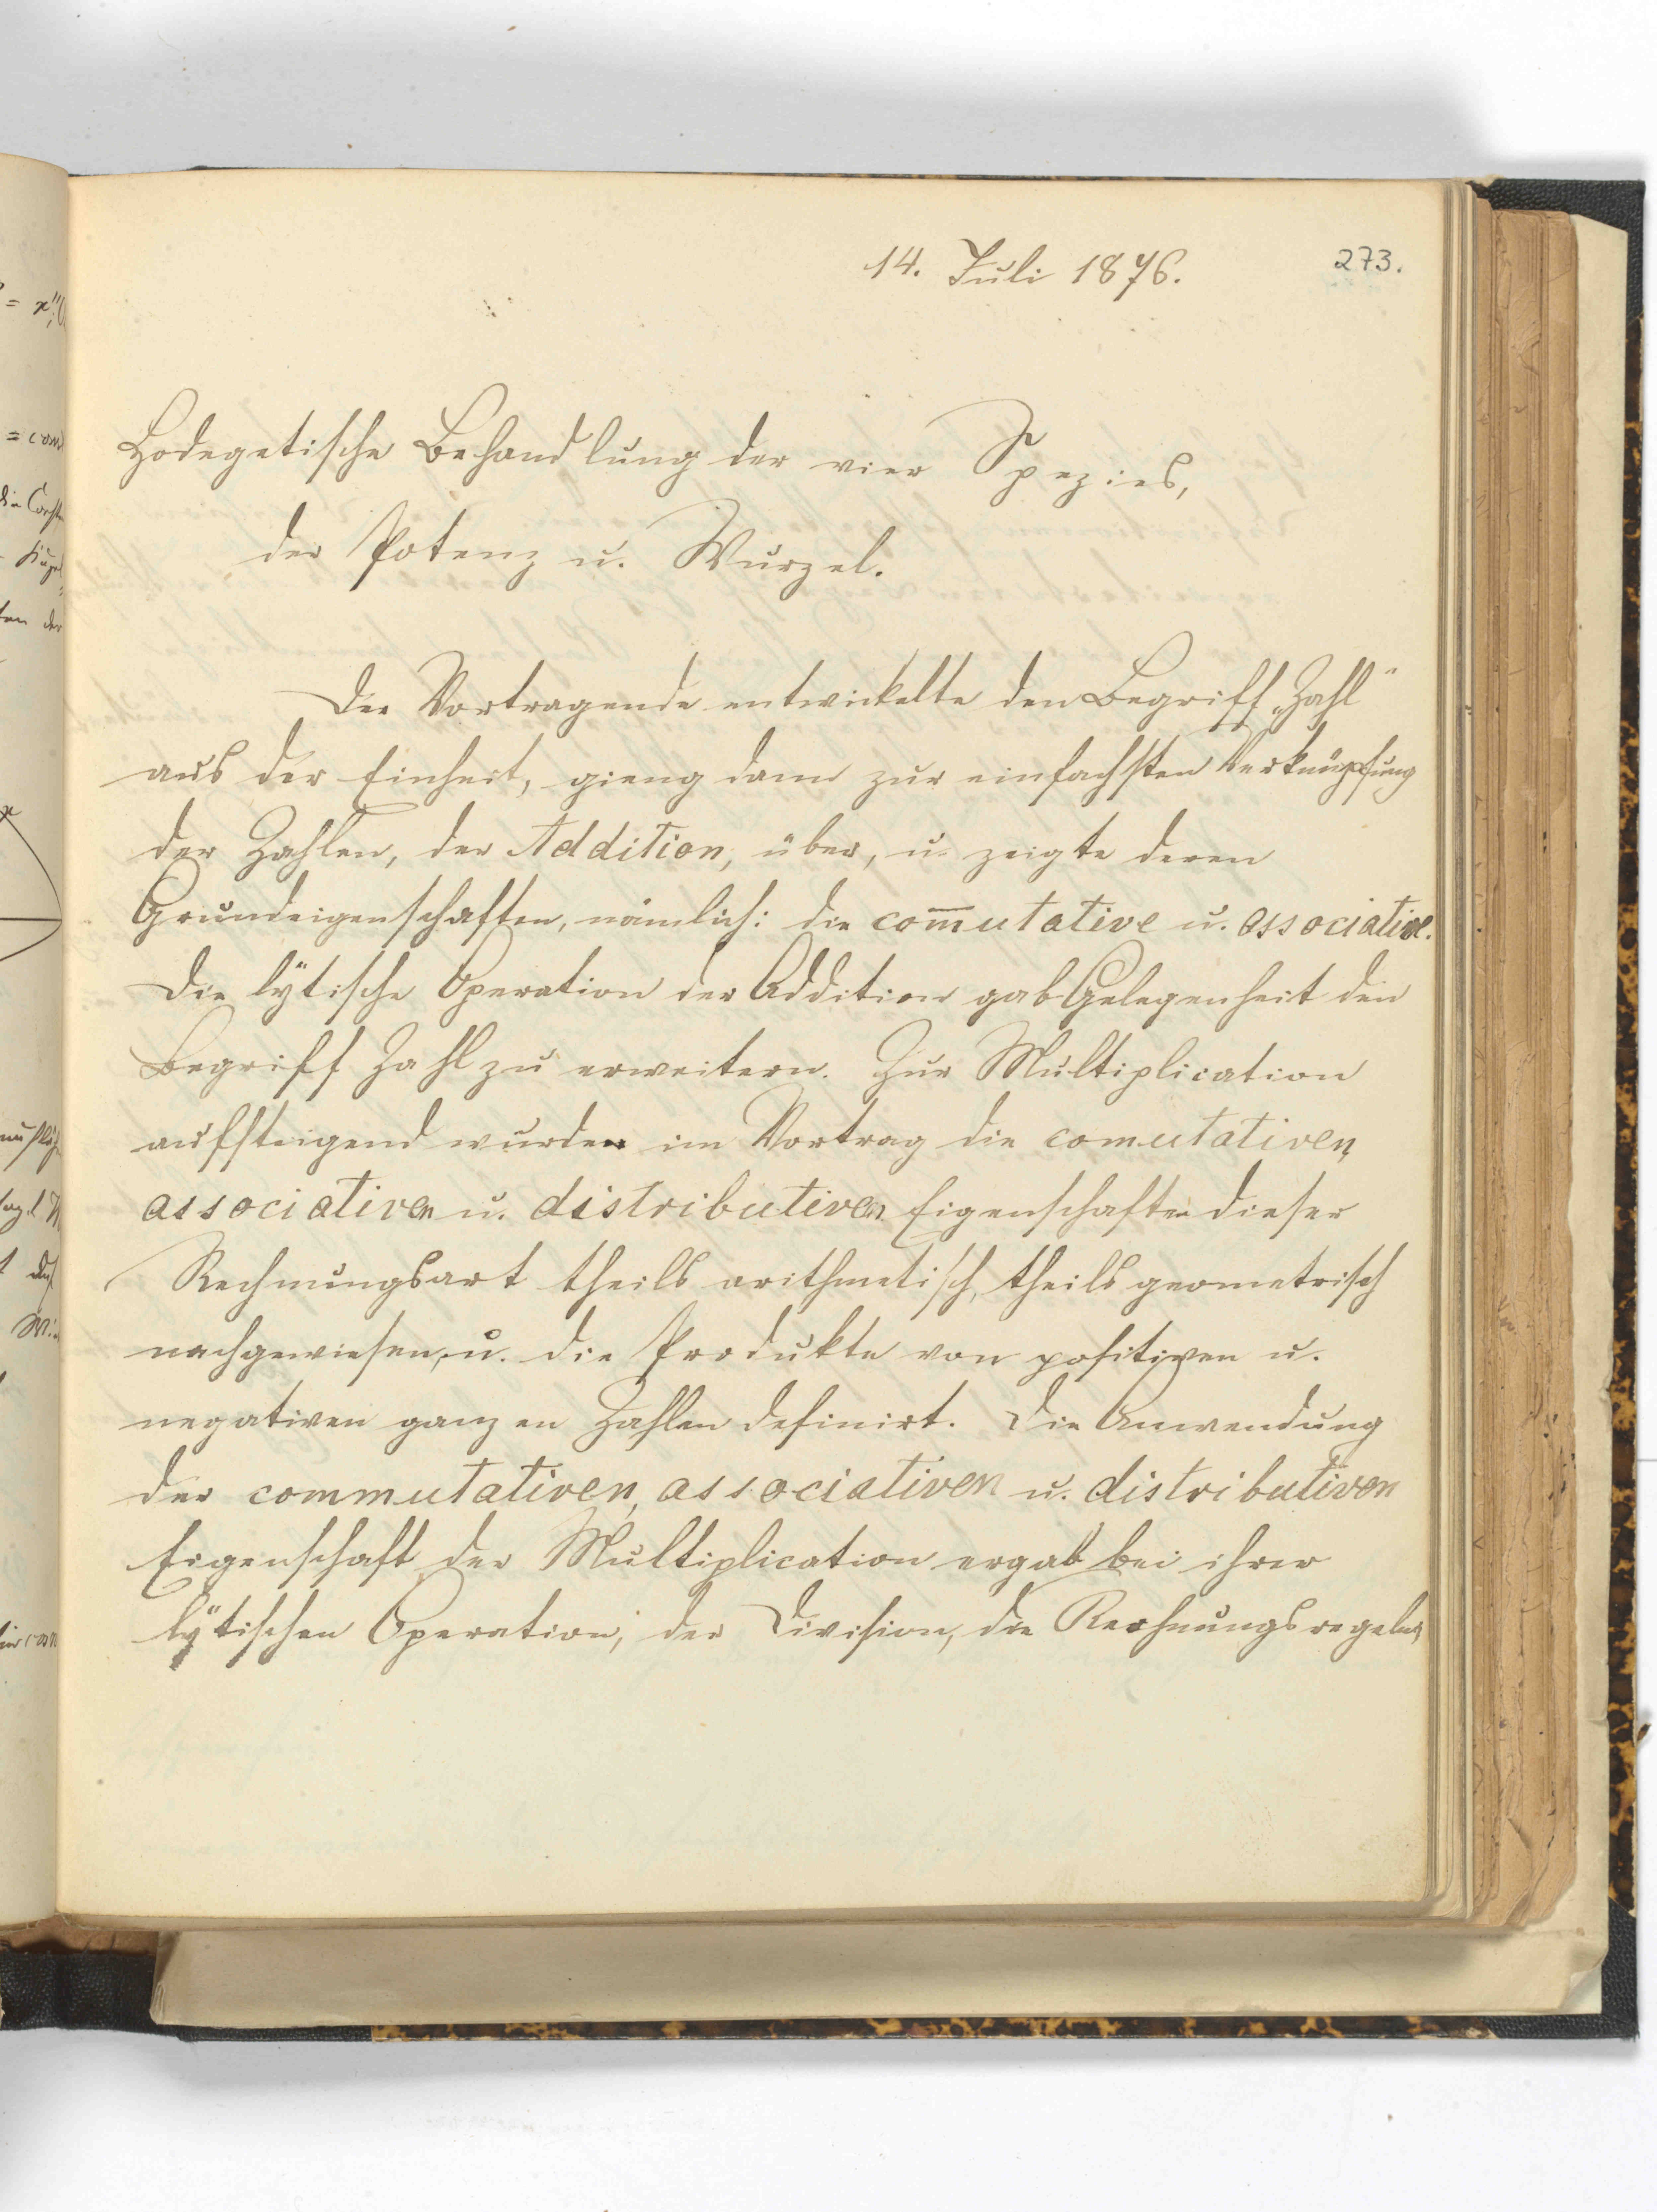 14. Juli 1876.
273.
Hodegetische Behandlung der vier Spezies,
der Potenz u. Wurzel.
Der Vortragende entwickelte den Begriff „Zahl“
aus der Einheit, gieng dann zur einfachsten Verknüpfung
der Zahlen, der Addition, über, u. zeigte deren
Grundeigenschaften, nämlich: die com̅utative u. associative.
Die lÿtische Operation der Addition gab Gelegenheit den
Begriff Zahl zu erweitern. Zur Multiplication
aufsteigend wurden im Vortrag die comutativen,
associativen u. distributiven Eigenschaften dieser
Rechnungsart theils arithmetisch, theils geometrisch
nachgewiesen, u. die Produkte von positiven u.
negativen ganzen Zahlen definirt. Die Anwendung
der commutativen, associativen u. distributiven
Eigenschaft der Multiplication ergab bei ihrer
lÿtischen Operation, der Division, die Rechnungsregeln,